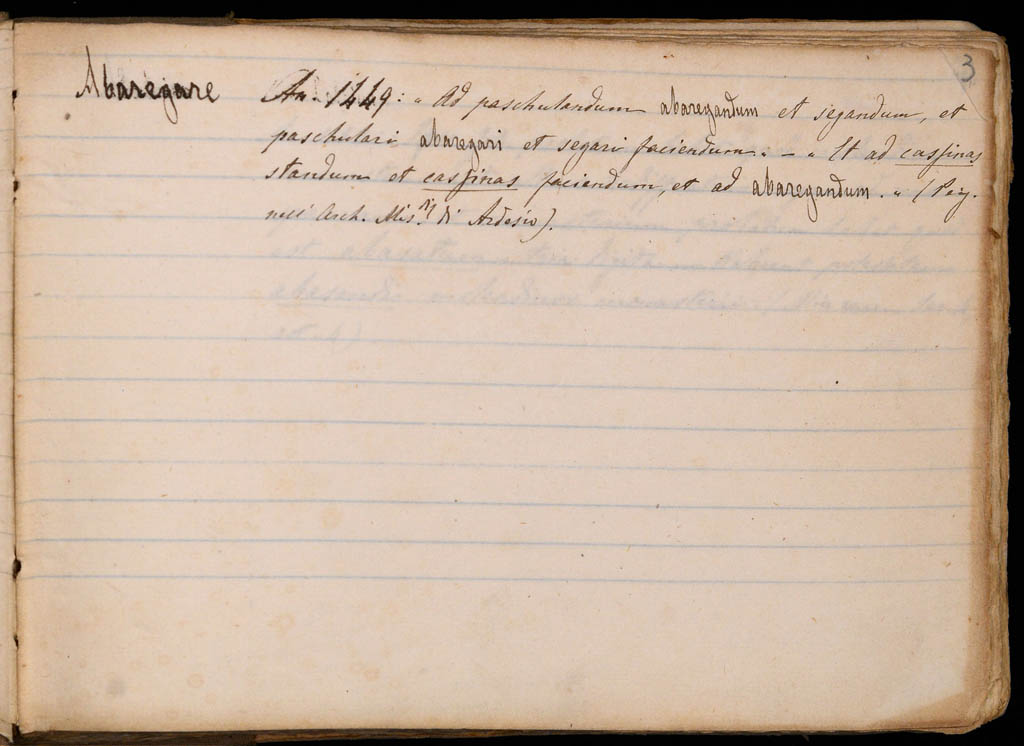 3
Abaregare An. 1449: " Ad paschulandum abaregandum et segandum, et
paschulari abaregari et segari faciendum. - " Et ad cassinas
standum et cassinas faciendum, et ad abaregandum. " (Perg.
nell' Arch. Mis.ri di Ardesio).